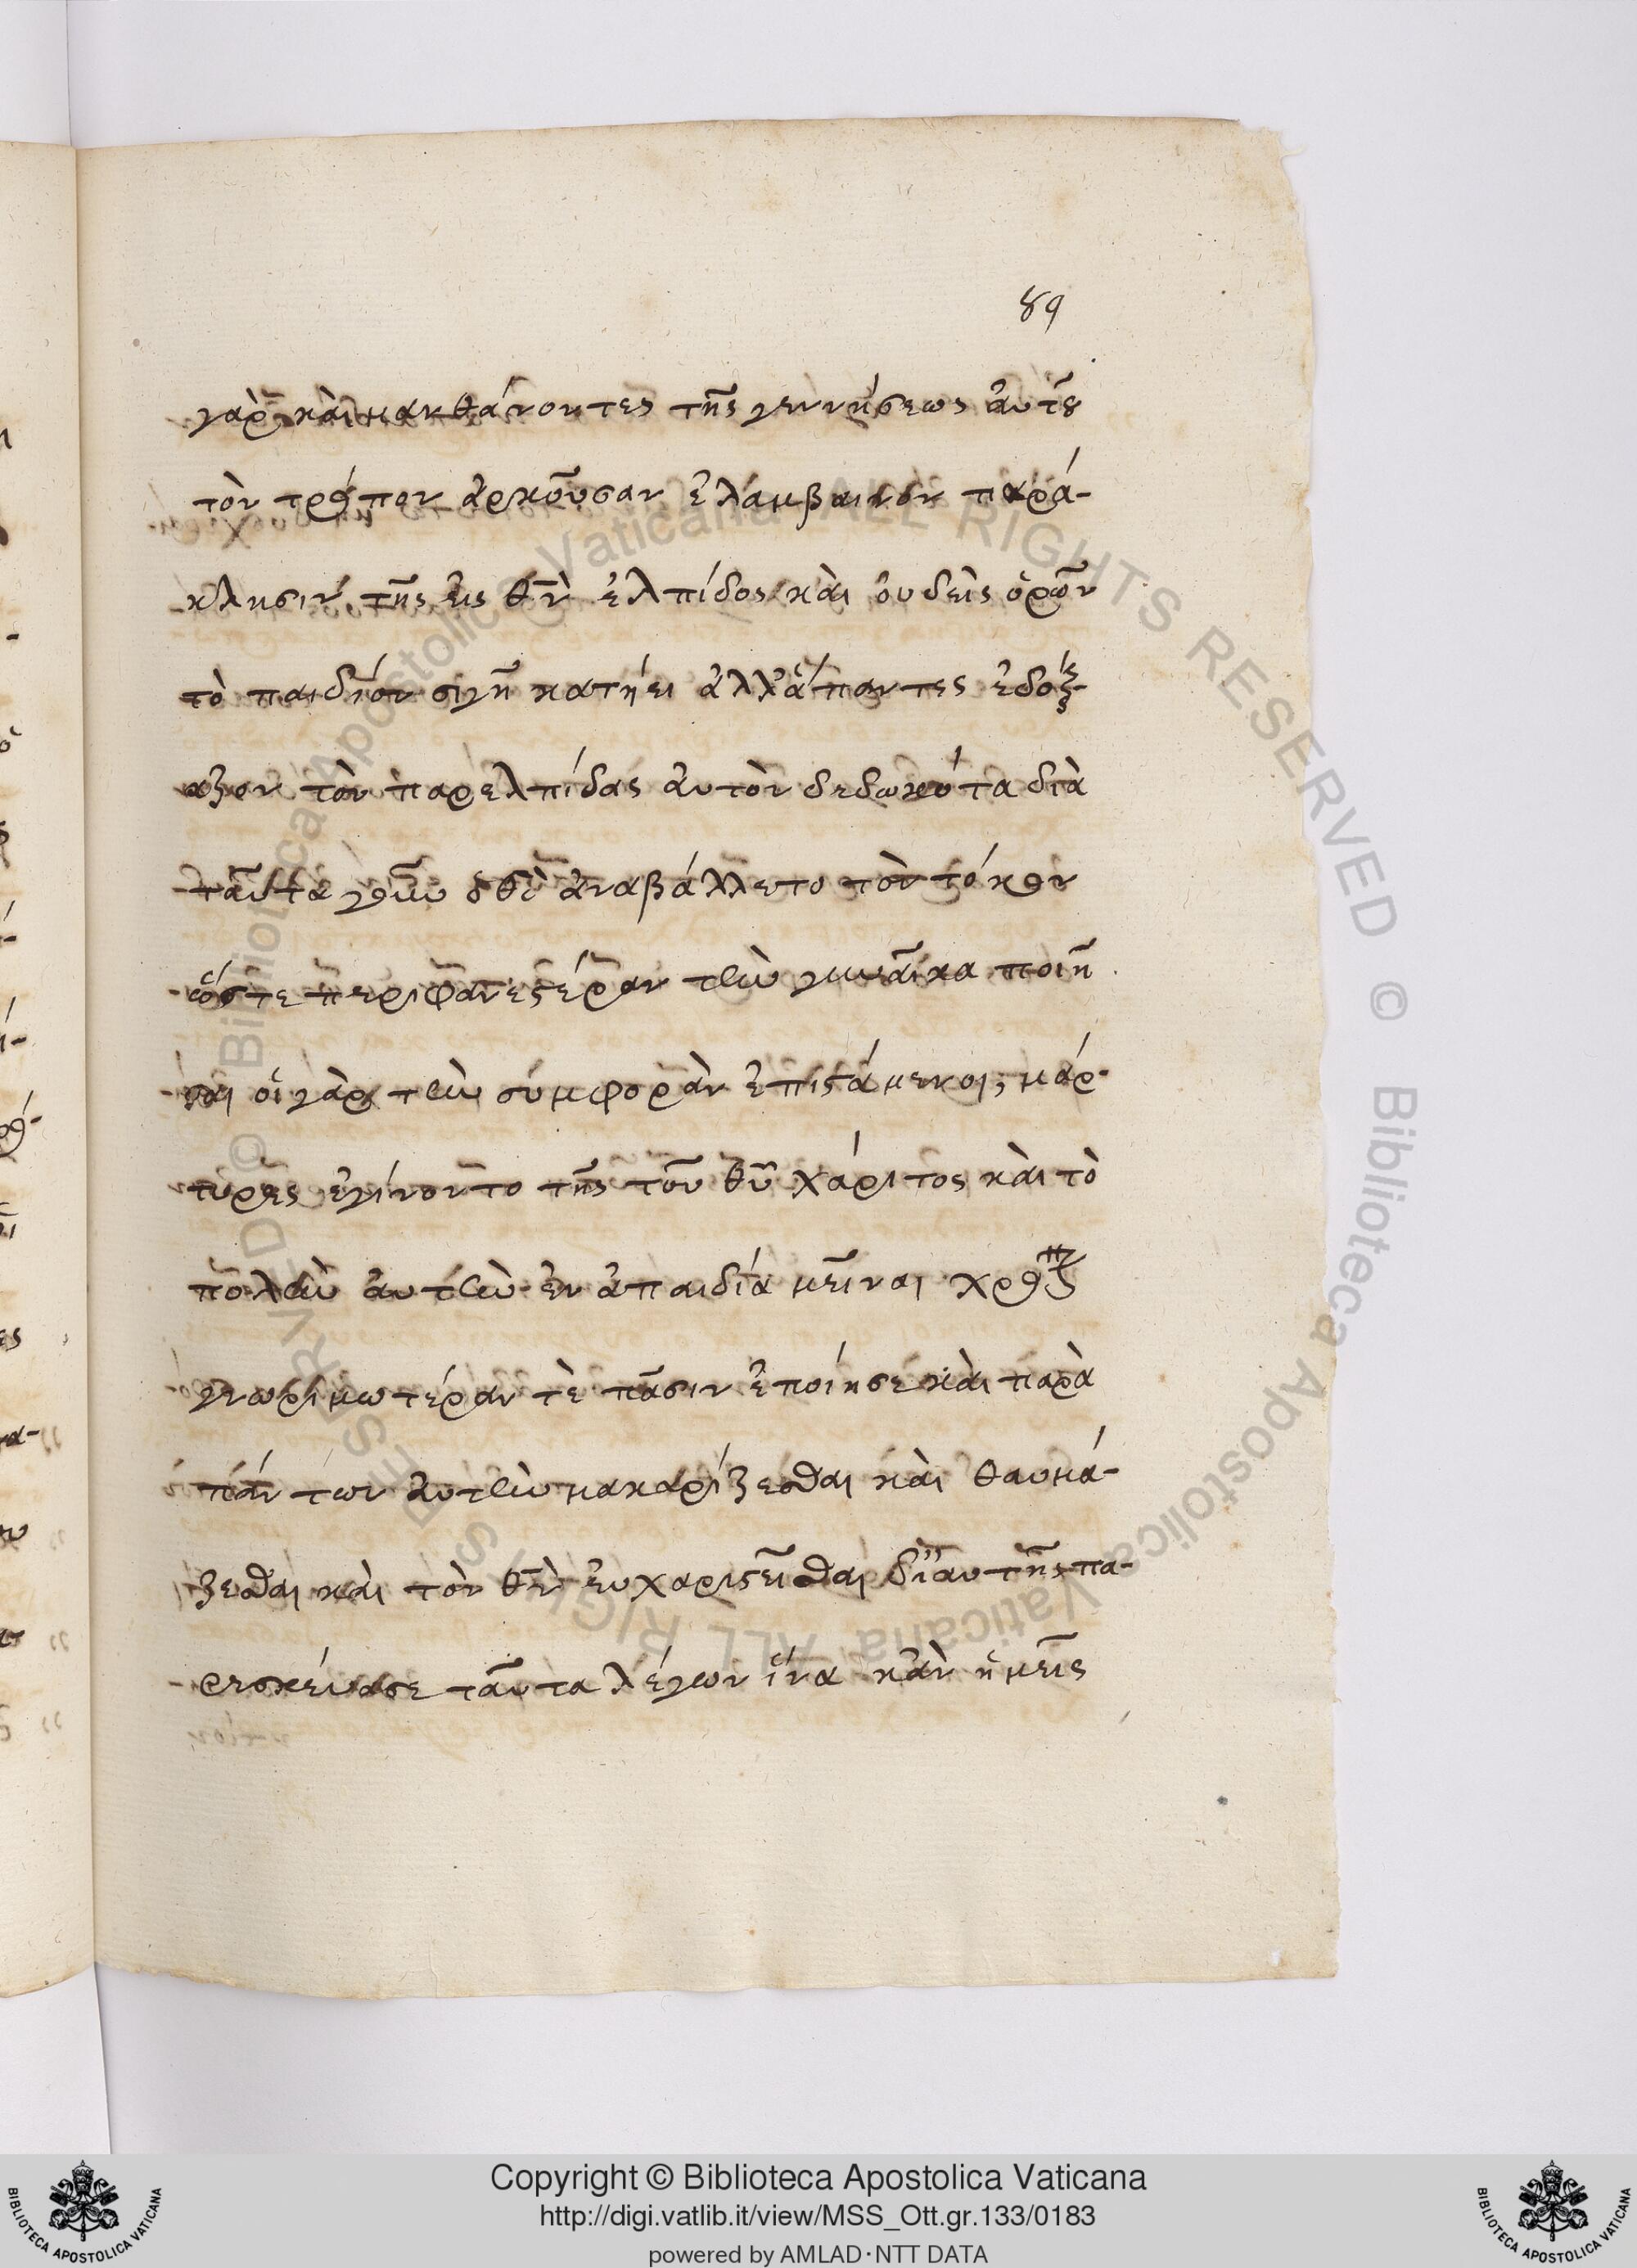 89
γὰρ καὶ μανθάνοντες τῆς γεννήσεως ἀυτȣ͂
τὸν τρόπον ἀρκοῦσαν ἐλάμβαινον παρά-
κλησιν τῆς εἰς θν̅ ἐλπίδος καὶ ὀυδεὶς ὁρῶν
τὸ παιδίον σιγῆ κατήει ἀλλ' ἅπαντες ἐδόξ-
αζον τὸν παρελπίδας ἀυτὸν δεδωκότα διὰ
ταῦτα γοῦν ὁ θς̅ ἀναβάλλετο τὸν τόκον
ὥστε περιφανεςέραν τὴν γυναῖκα ποιῆ
σαι οἱ γὰρ τὴν συμφορὰν ἐπιςάμενοι, μάρ-
τυρες ἐγίνοντο τῆς τοῦ θυ̅ χάριτος καὶ τὸ
πολὺν ἀυτὴν ἐν ἀπαιδία μεῖναι χρο
γνωριμωτέραν τὲ πᾶσιν ἐποίησε καὶ παρὰ
πάντων ἀυτὴν μακαρίζεσθαι καὶ θαυμά-
ζεσθαι καὶ τὸν θν̅ ἐυχαριςεῖσθαι δι' ἀυτῆς πα-
ρεσκεύασε ταῦτα λέγων ἵνα κἂν ἡμεῖς
Copyright © Biblioteca Apostolica Vaticana
http://digi.vatlib.it/view/MSS_Ott.gr.133/0183
powered by AMLAD·NTT DATA
BIBLIOTECA APOSTOLICA VATICANA
BIBLIOTECA APOSTOLICA VATICANA
© Biblioteca Apostolica Vaticana ALL RIGHTS RESERVED © Biblioteca Apostolica Vaticana ALL RIGHTS RESERVED